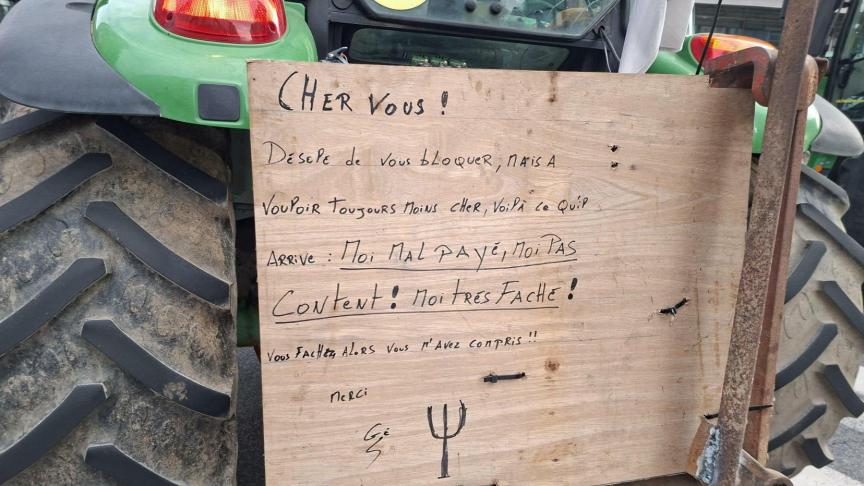 CHER VOUS !
DÉSOLÉ de VOUS bLOQUER, MAIS A
VOULOIR TOUJOURS MOINS CHER, VOILÀ CE QU'IL
ARRIVE : MOI MAL PAYÉ, MOI PAS
CONTENT ! MOI TRÉS FACHÉ !
VOUS FACHEZ, ALORS VOUS M'AVEZ COMPRIS !!
MERCI
Gé